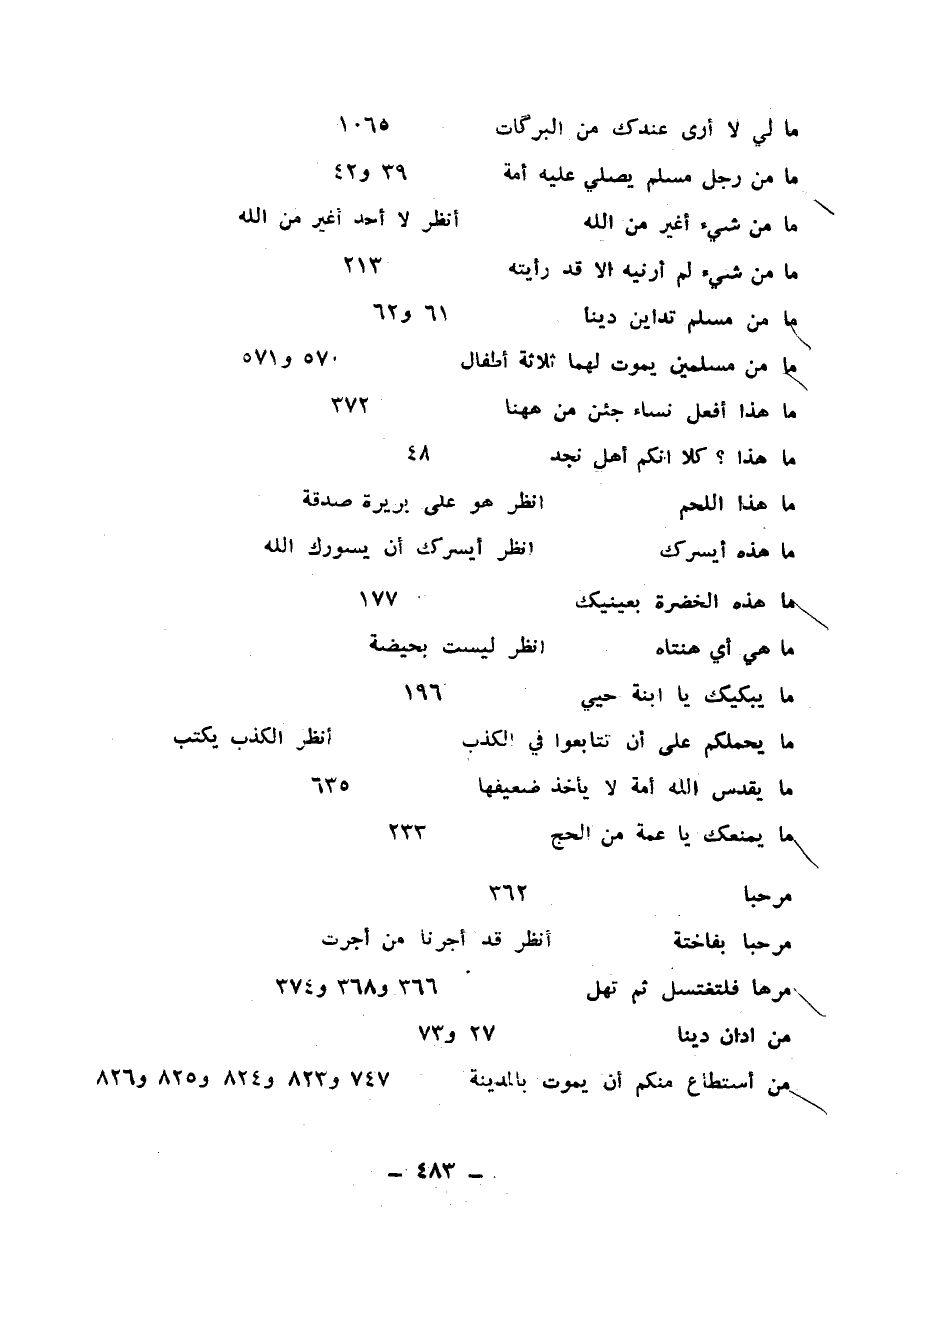 ما لي لا أرى عندك من البركات ١٠٦٥
ما من رجل مسلم يصلي عليه أمة ٣٩ و٤٢
ما من شيء أغير من الله أنظر لا أحد أغير من الله
ما من شيء لم أرنيه الا قد رأيته ٢١٣
ما من مسلم تداين دينا ٦١ و٦٢
ما من مسلمين يموت لهما ثلاثة أطفال ٥٧٠ و٥٧١
ما هذا أفعل نساء جئن من ههنا ٣٧٢
ما هذا ؟ كلا انكم أهل نجد ٤٨
ما هذا اللحم انظر هو على بريرة صدقة
ما هذه أيسرك انظر أيسرك أن يسورك الله
ما هذه الخضرة بعينيك ١٧٧
ما هي أي هنتاه انظر ليست بحيضة
ما يبكيك يا ابنة حيي ١٩٦
ما يحملكم على أن تتابعوا في الكذب أنظر الكذب يكتب
ما يقدس الله أمة لا يأخذ ضعيفها ٦٣٥
ما يمنعك يا عمة من الحج ٢٣٣
مرحبا ٣٦٢
مرحبا بفاختة أنظر قد أجرنا من أجرت
مرها فلتغتسل ثم تهل ٣٦٦ و٣٦٨ و٣٧٤
من ادان دينا ٢٧ و٧٣
من أستطاع منكم أن يموت بالمدينة ٧٤٧ و٨٢٣ و٨٢٤ و٨٢٥ و٨٢٦
– ٤٨٣ –